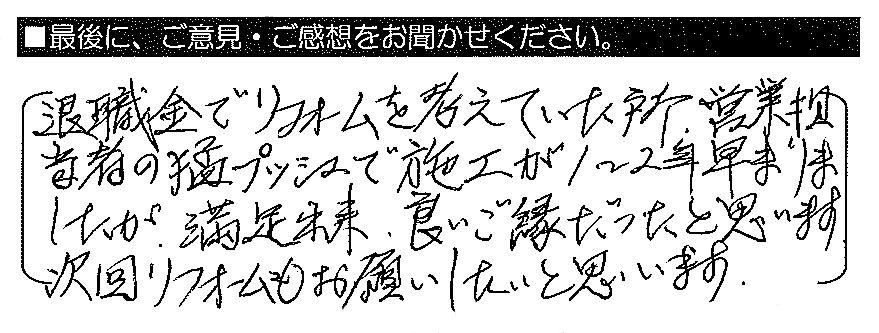 ■最後に、ご意見・ご感想をお聞かせください。
退職金でリフォームを考えていた所、営業担
当者の猛プッシュで施工が1~2年早まりま
したが、満足出来、良いご縁だったと思います
次回リフォームもお願いしたいと思います.